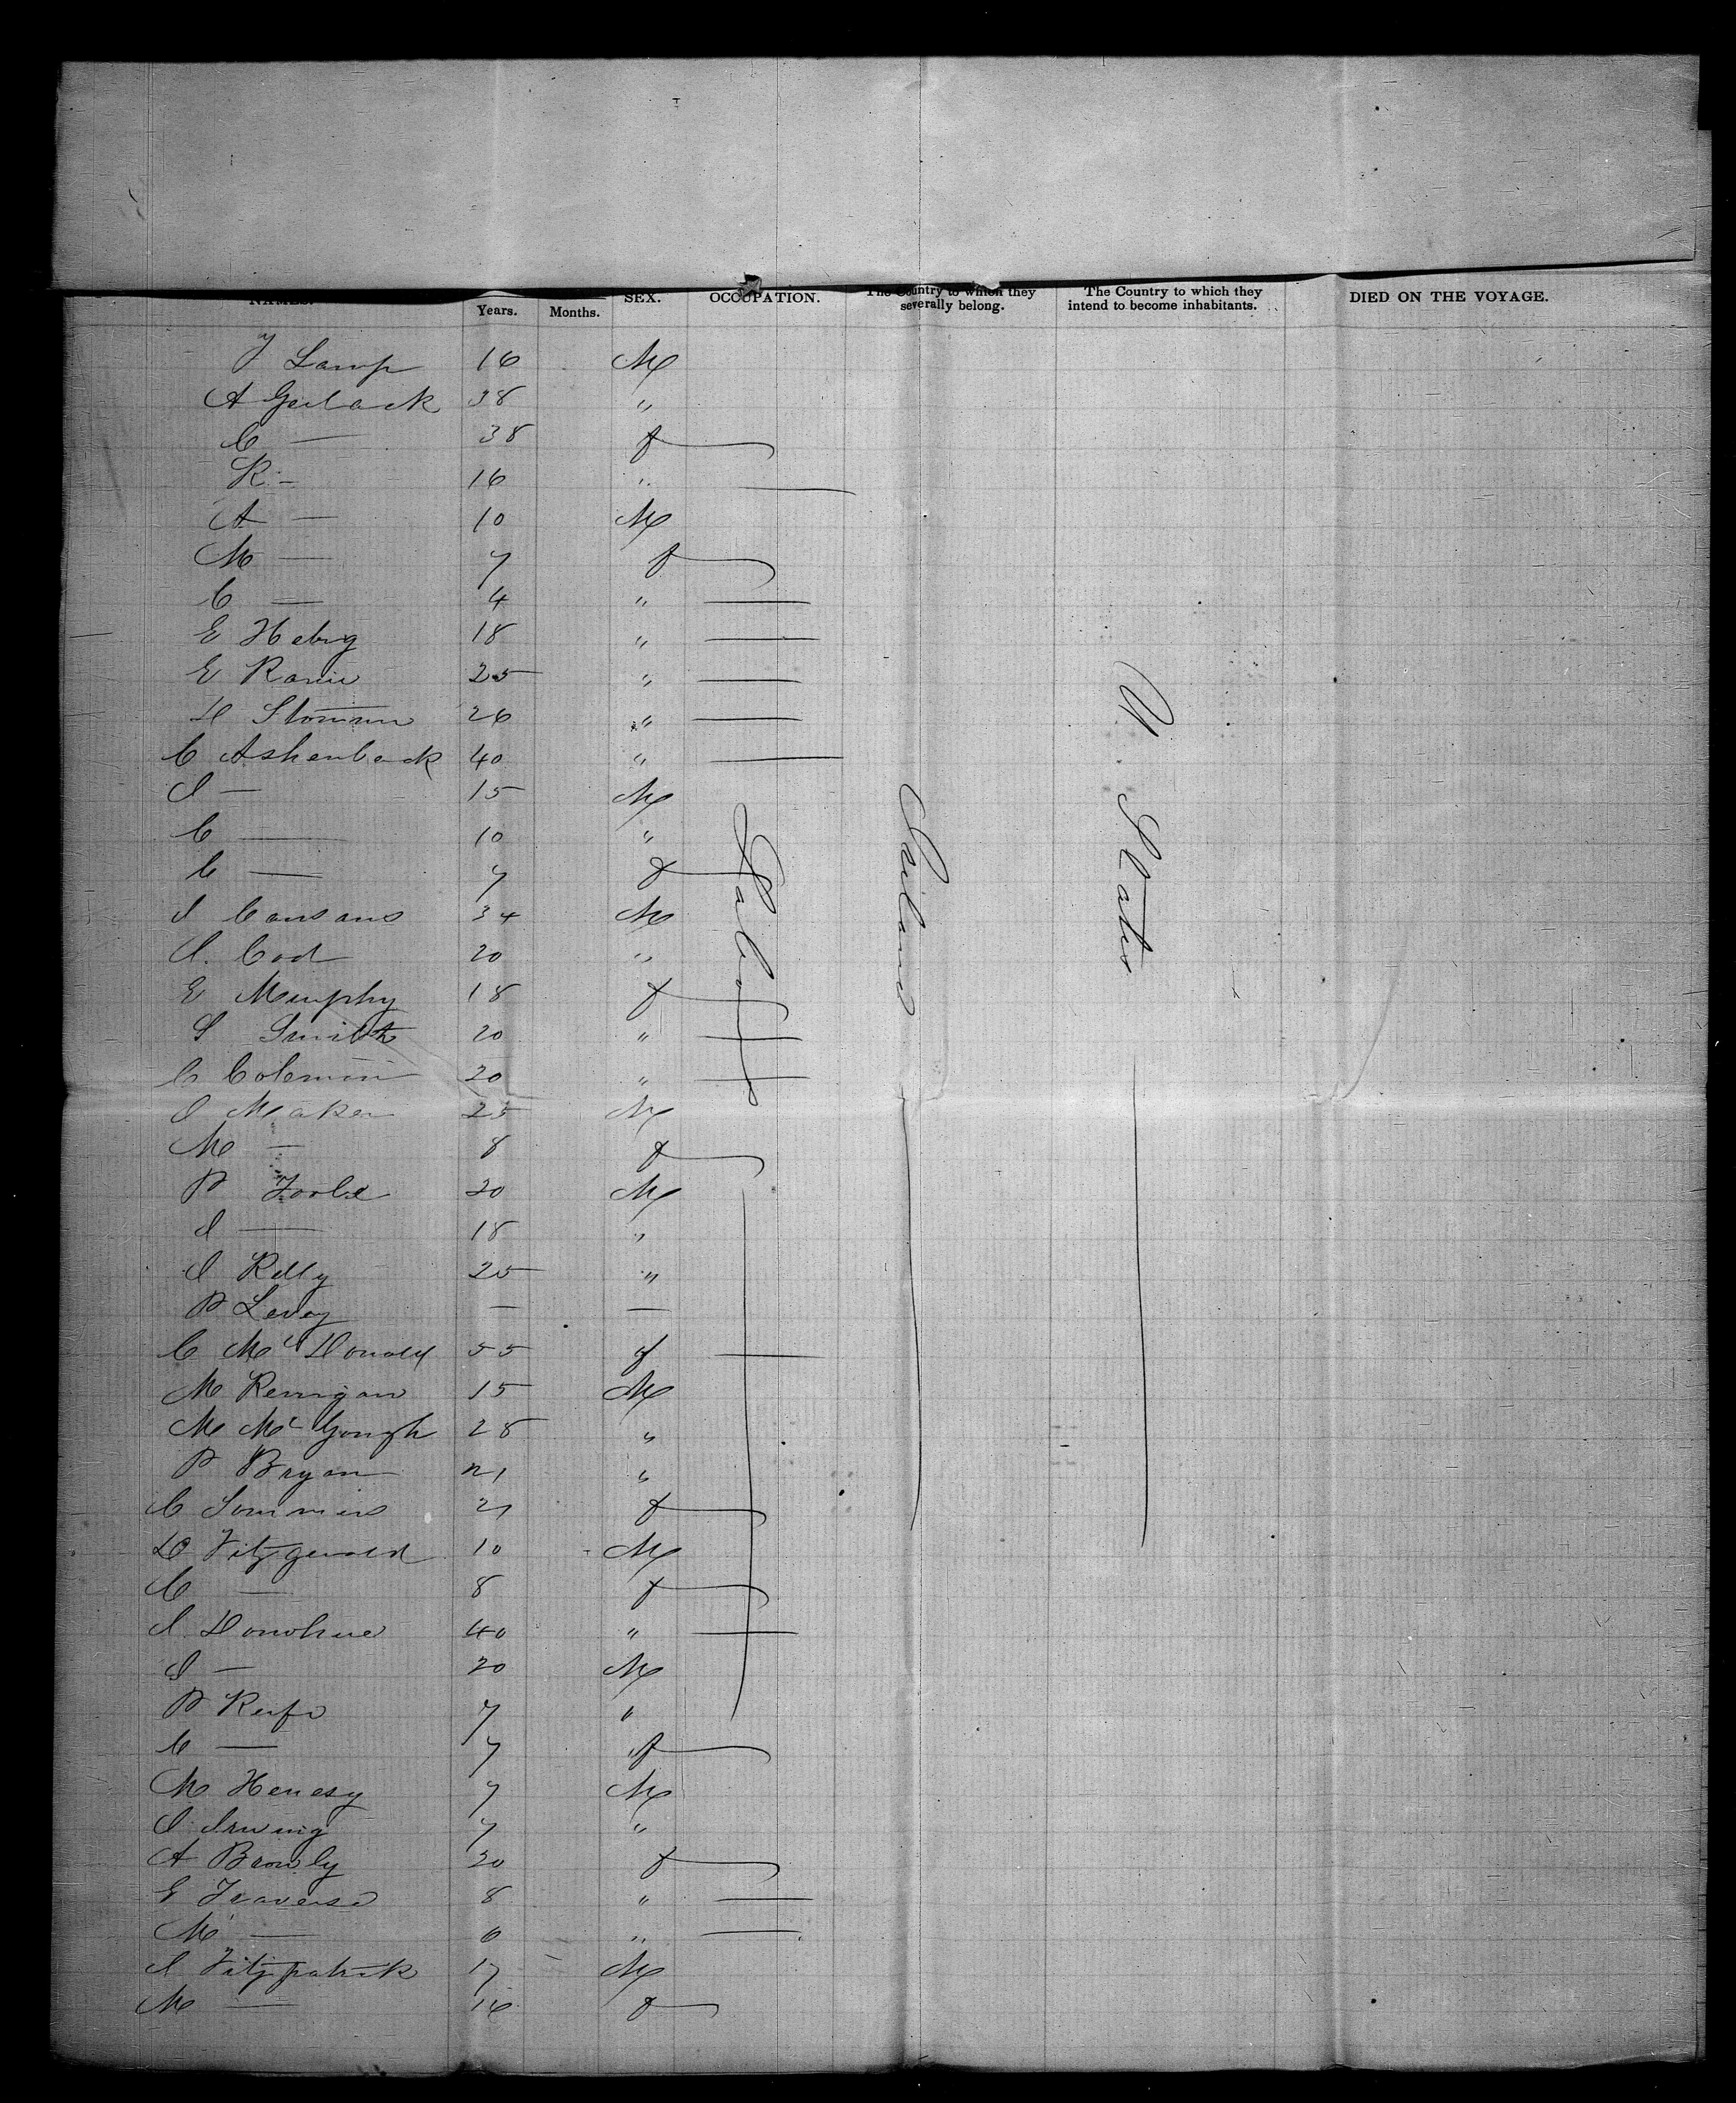 NAMES. Years. Months. SEX. OCCUPATION. The Country to which they severally belong. The Country to which they intend to become inhabitants. DIED ON THE VOYAGE.
J Lamp 16 M
A Gerlack 38 "
C — 38 f
K — 16 "
A — 10 M
M — 7 f
C — 4 " —
E Hebig 18 " —
E 25 " —
26 " —
C Ashenback 40 " —
J — 15 M
C — 10 "
C — 7 f
J 34 M
J. Cod 20 "
E Murphy 18 f
S Smith 20 " —
C Coleman 20 " —
J Maken 25 M
M — 8 f
P Toole 20 M
J — 18 "
J Kelly 25 "
P Levey — —
C McDonald 55 f —
M Kernigan 15 M
M McGough 28 "
P Bryan 21 "
C Sommers 21 f
D Fitzgerald 10 M
C — 8 f
J Donohue 40 " —
J — 20 M
P Keefe 7 "
C — 7 f
M Henesy 7 M
J Irwing 7 "
A 20 f
E Traverse 8 " —
M — 6 " —
J Fitzpatrick 17 M
M — 16 f
Labourer
Ireland
U. States